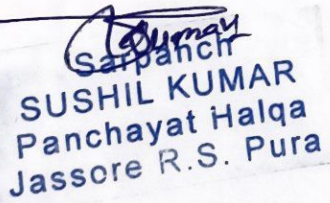 Sarpanch
SUSHIL KUMAR
Panchayat Halqa
Jassore R.S. Pura